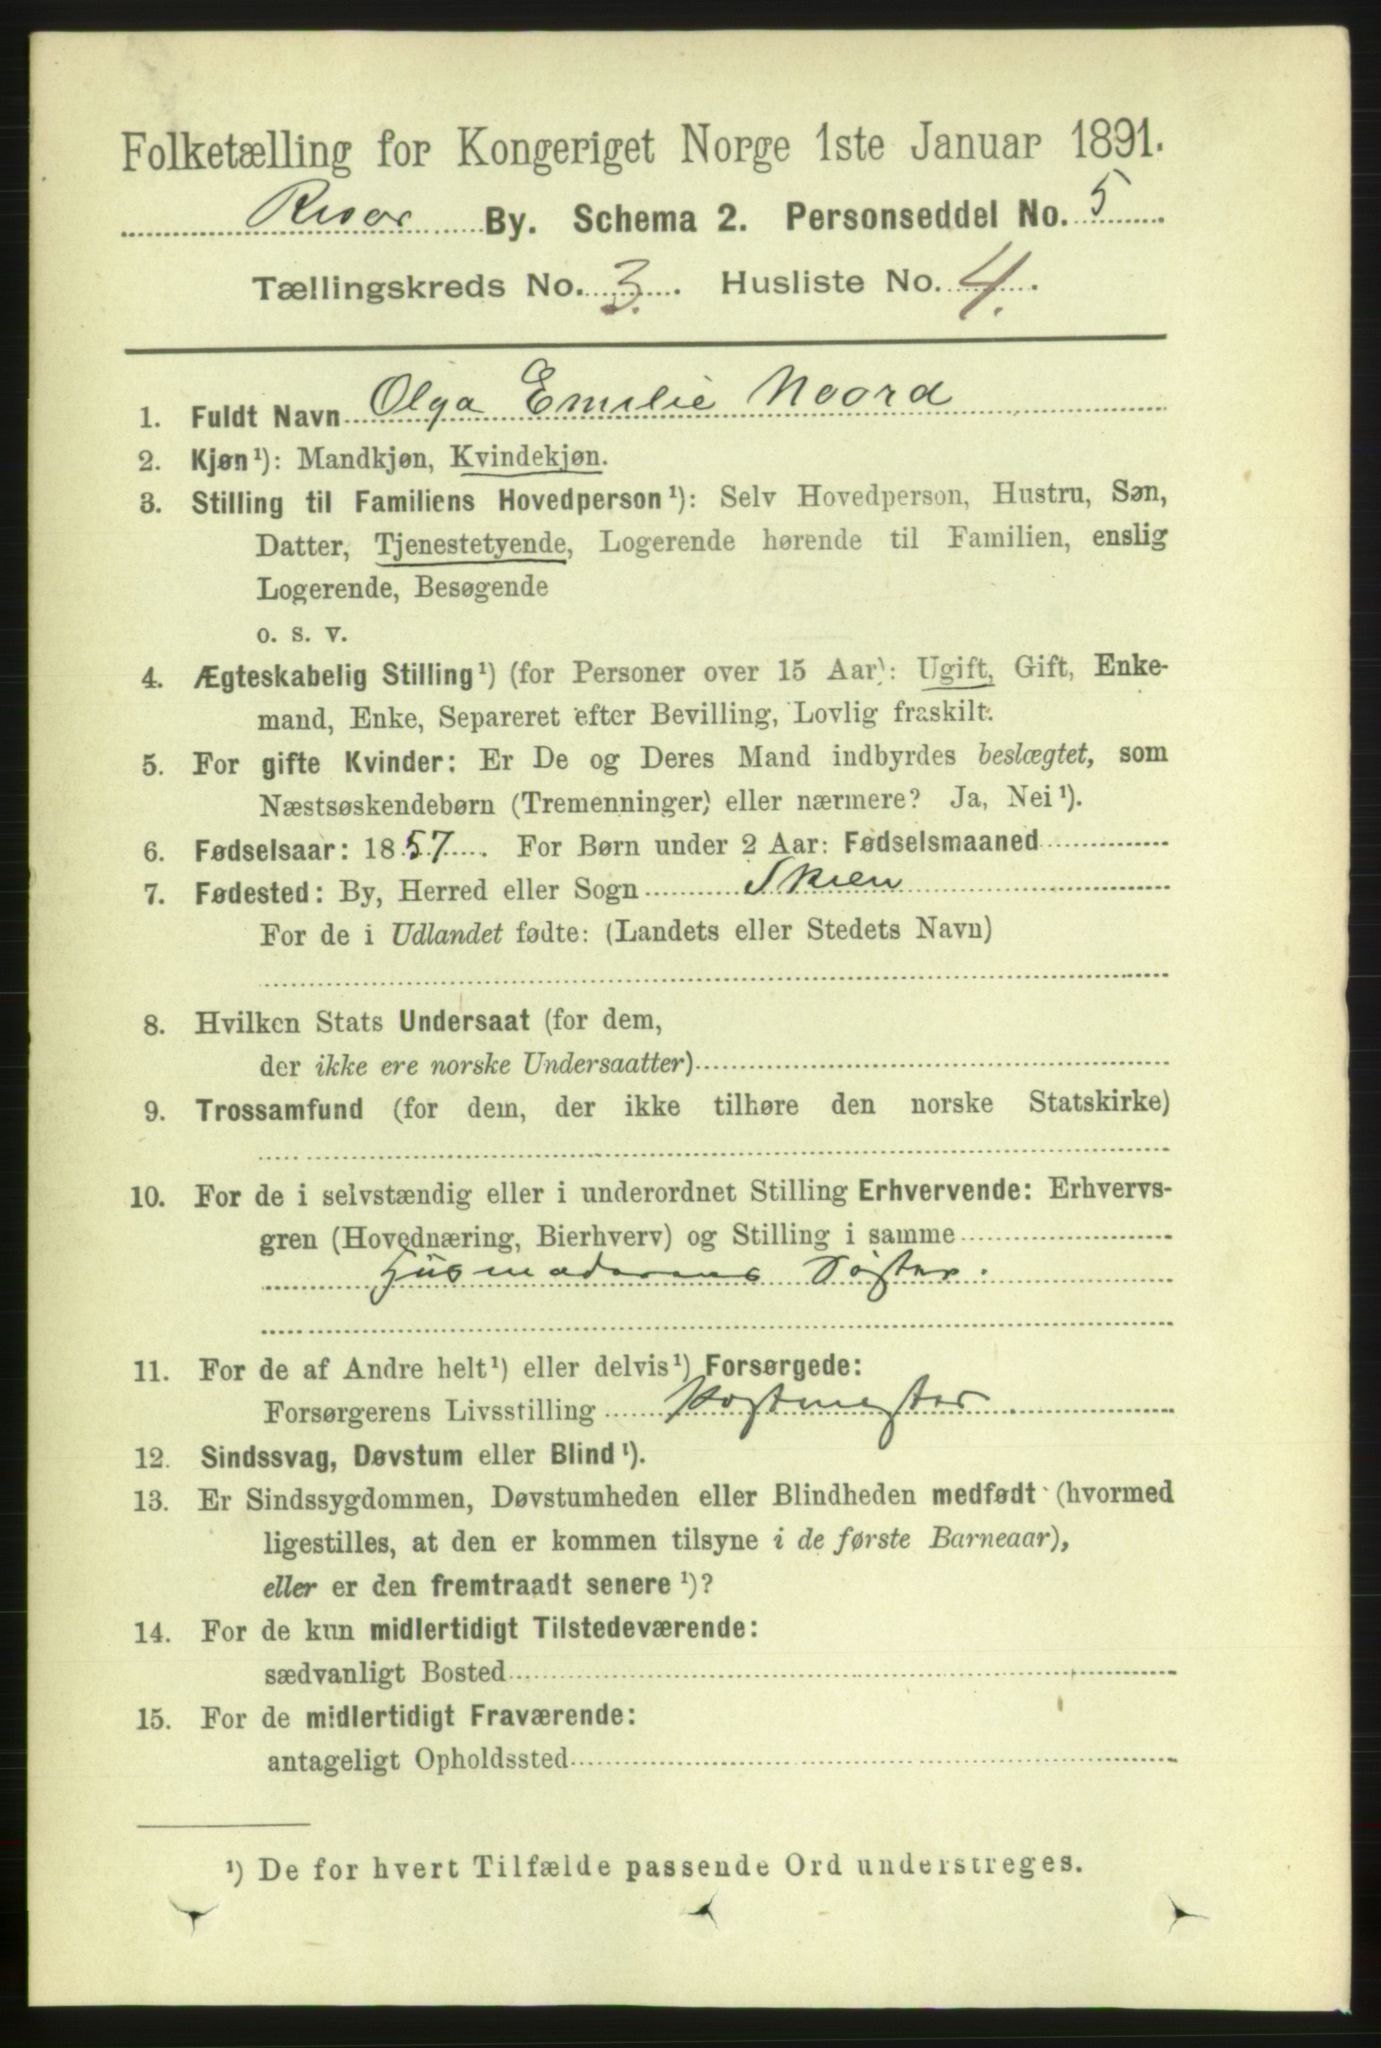 Folketælling for Kongeriget Norge 1ste Januar 1891.
Risør By. Schema 2. Personseddel No. 5
Tællingskreds No. 3. Husliste No. 4.
1. Fuldt Navn Olga Emilie Noord
2. Kjøn¹): Mandkjøn, Kvindekjøn.
3. Stilling til Familiens Hovedperson¹): Selv Hovedperson, Hustru, Søn,
Datter, Tjenestetyende, Logerende hørende til Familien, enslig
Logerende, Besøgende
o. s. v.
4. Ægteskabelig Stilling¹) (for Personer over 15 Aar): Ugift, Gift, Enke-
mand, Enke, Separeret efter Bevilling, Lovlig fraskilt.
5. For gifte Kvinder: Er De og Deres Mand indbyrdes beslægtet, som
Næstsøskendebørn (Tremenninger) eller nærmere? Ja, Nei¹).
6. Fødselsaar: 1857. For Børn under 2 Aar: Fødselsmaaned
7. Fødested: By, Herred eller Sogn Skien
For de i Udlandet fødte: (Landets eller Stedets Navn)
8. Hvilken Stats Undersaat (for dem,
der ikke ere norske Undersaatter)
9. Trossamfund (for dem, der ikke tilhøre den norske Statskirke)
10. For de i selvstændig eller i underordnet Stilling Erhvervende: Erhvervs-
gren (Hovednæring, Bierhverv) og Stilling i samme
Husmoderens Søster.
11. For de af Andre helt¹) eller delvis¹) Forsørgede:
Forsørgerens Livsstilling Postmester
12. Sindssvag, Døvstum eller Blind¹).
13. Er Sindssygdommen, Døvstumheden eller Blindheden medfødt (hvormed
ligestilles, at den er kommen tilsyne i de første Barneaar),
eller er den fremtraadt senere¹)?
14. For de kun midlertidigt Tilstedeværende:
sædvanligt Bosted
15. For de midlertidigt Fraværende:
antageligt Opholdssted
¹) De for hvert Tilfælde passende Ord understreges.